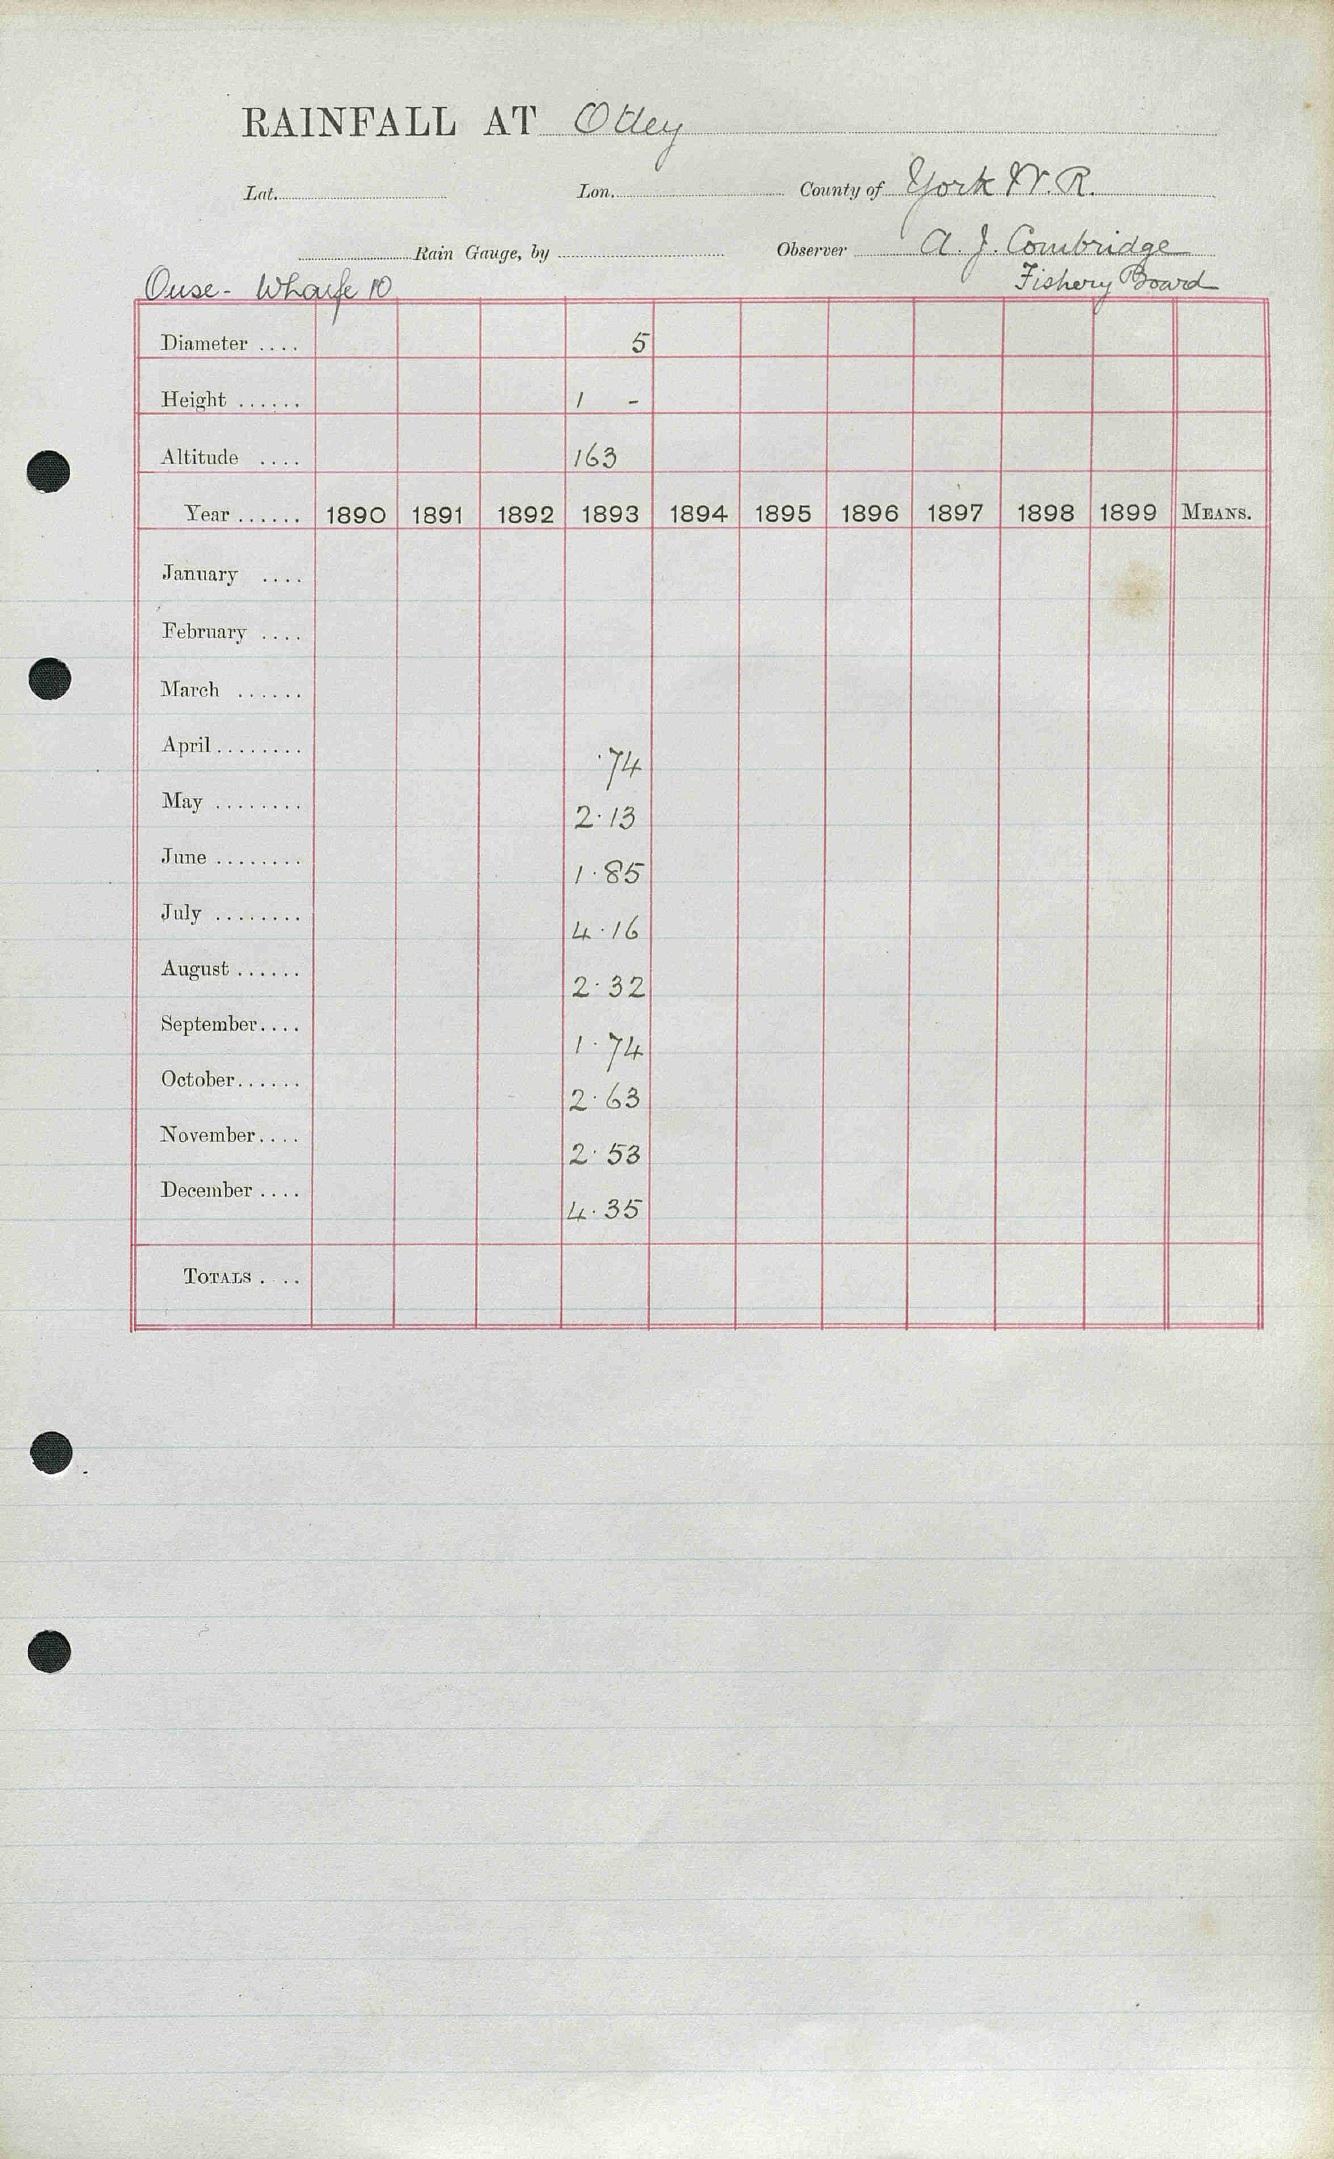 RAINFALL AT Otley
Lat. Lon. County of York W. R.
Rain Gauge, by Observer A. J. Combridge
Ouse - Wharfe 10 Fishery Board
Diameter .... 5
Height ...... 1 -
Altitude .... 163
Year ...... 1890 1891 1892 1893 1894 1895 1896 1897 1898 1899 MEANS.
January ....
February ....
March ......
April ........ ·74
May ........ 2·13
June ........ 1·85
July ........ 4·16
August ...... 2·32
September .... 1·74
October ...... 2·63
November .... 2·53
December .... 4·35
TOTALS ....